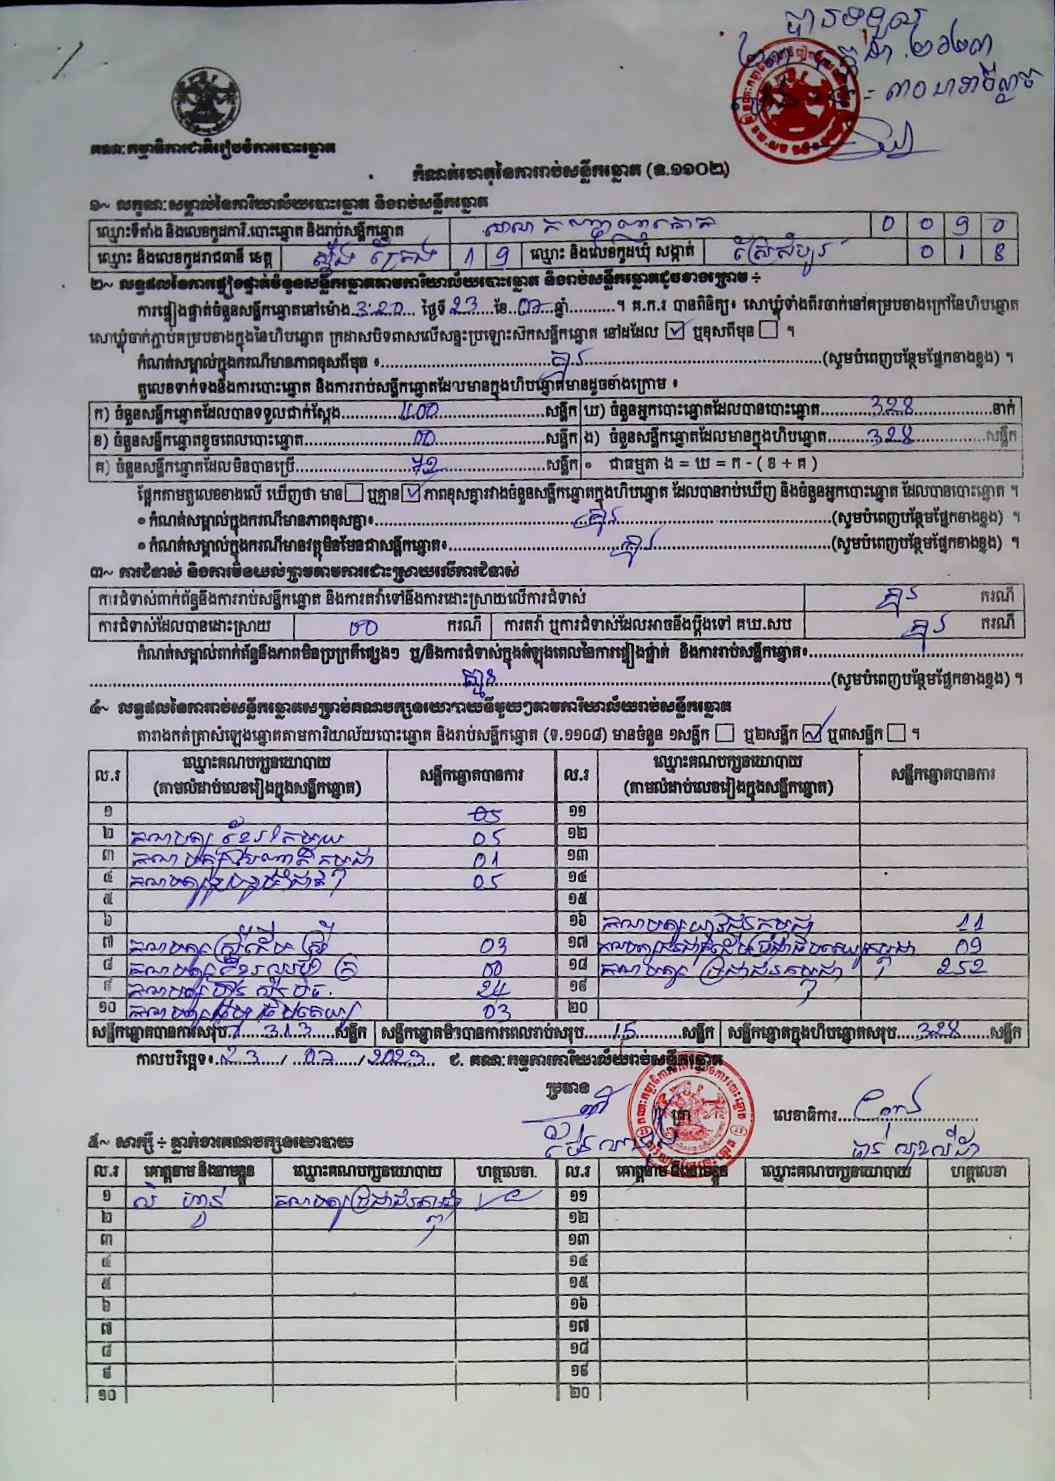 បានទទួល
គណៈកម្មាធិការជាតិរៀបចំការបោះឆ្នោត
កំណត់ហេតុនៃការរាប់សន្លឹកឆ្នោត (ទ.១១០២)
១~ លក្ខណៈសម្គាល់នៃការិយាល័យបោះឆ្នោត និងរាប់សន្លឹកឆ្នោត
ឈ្មោះទីតាំង និងលេខកូដការិ.បោះឆ្នោត និងរាប់សន្លឹកឆ្នោត 0 0 9 0
ឈ្មោះ និងលេខកូដរាជធានី ខេត្ត ស្ទឹង ត្រែង 1 9 ឈ្មោះ និងលេខកូដឃុំ សង្កាត់ ស្រែសំបូរ 0 1 8
២~ លទ្ធផលនៃការផ្ទៀងផ្ទាត់ចំនួនសន្លឹកឆ្នោតតាមការិយាល័យបោះឆ្នោត និងរាប់សន្លឹកឆ្នោតដូចខាងក្រោម ÷
ការផ្ទៀងផ្ទាត់ចំនួនសន្លឹកឆ្នោតនៅម៉ោង 3:20 ថ្ងៃទី 23 ខែ 07 ឆ្នាំ.......... ។ គ.ក.រ បានពិនិត្យ៖ សោឃ្លុំទាំងពីរចាក់នៅគម្របខាងក្រៅនៃហិបឆ្នោត
សោឃ្លុំចាក់ភ្ជាប់គម្របខាងក្នុងនៃហិបឆ្នោត ក្រដាសបិទពាសលើសន្ទះប្រឡោះស៊កសន្លឹកឆ្នោត នៅដដែល ☑ ឬខុសពីមុន ☐ ។
កំណត់សម្គាល់ក្នុងករណីមានភាពខុសពីមុន ៖ គ្មាន (សូមបំពេញបន្ថែមផ្នែកខាងខ្នង) ។
តួលេខទាក់ទងនឹងការបោះឆ្នោត និងការរាប់សន្លឹកឆ្នោតដែលមានក្នុងហិបឆ្នោតមានដូចខាងក្រោម ៖
ក) ចំនួនសន្លឹកឆ្នោតដែលបានទទួលជាក់ស្ដែង 400 សន្លឹក ឃ) ចំនួនអ្នកបោះឆ្នោតដែលបានបោះឆ្នោត 328 នាក់
ខ) ចំនួនសន្លឹកឆ្នោតខូចពេលបោះឆ្នោត 00 សន្លឹក ង) ចំនួនសន្លឹកឆ្នោតដែលមានក្នុងហិបឆ្នោត 328 សន្លឹក
គ) ចំនួនសន្លឹកឆ្នោតដែលមិនបានប្រើ 72 សន្លឹក ● ជាធម្មតា ង = ឃ = ក - ( ខ + គ )
ផ្អែកតាមតួលេខខាងលើ ឃើញថា មាន ☐ ឬគ្មាន ☑ ភាពខុសគ្នារវាងចំនួនសន្លឹកឆ្នោតក្នុងហិបឆ្នោត ដែលបានរាប់ឃើញ និងចំនួនអ្នកបោះឆ្នោត ដែលបានបោះឆ្នោត ។
● កំណត់សម្គាល់ក្នុងករណីមានភាពខុសគ្នា៖ គ្មាន (សូមបំពេញបន្ថែមផ្នែកខាងខ្នង) ។
● កំណត់សម្គាល់ក្នុងករណីមានវត្ថុមិនមែនជាសន្លឹកឆ្នោត៖ គ្មាន (សូមបំពេញបន្ថែមផ្នែកខាងខ្នង) ។
៣~ ការជំទាស់ និងការមិនយល់ព្រមតាមការដោះស្រាយលើការជំទាស់
ការជំទាស់ពាក់ព័ន្ធនឹងការរាប់សន្លឹកឆ្នោត និងការតវ៉ាទៅនឹងការដោះស្រាយលើការជំទាស់ គ្មាន ករណី
ការជំទាស់ដែលបានដោះស្រាយ 00 ករណី ការតវ៉ា ឬការជំទាស់ដែលអាចនឹងប្ដឹងទៅ គឃ.សប គ្មាន ករណី
កំណត់សម្គាល់ពាក់ព័ន្ធនឹងភាពមិនប្រក្រតីផ្សេងៗ ឬ/និងការជំទាស់ក្នុងអំឡុងពេលនៃការផ្ទៀងផ្ទាត់ និងការរាប់សន្លឹកឆ្នោត៖
គ្មាន (សូមបំពេញបន្ថែមផ្នែកខាងខ្នង) ។
៤~ លទ្ធផលនៃការរាប់សន្លឹកឆ្នោតសម្រាប់គណបក្សនយោបាយនីមួយៗតាមការិយាល័យរាប់សន្លឹកឆ្នោត
តារាងកត់ត្រាសំឡេងឆ្នោតតាមការិយាល័យបោះឆ្នោត និងរាប់សន្លឹកឆ្នោត (ទ.១១០៨) មានចំនួន ១សន្លឹក ☐ ឬ២សន្លឹក ☑ ឬ៣សន្លឹក ☐ ។
ល.រ ឈ្មោះគណបក្សនយោបាយ (តាមលំដាប់លេខរៀងក្នុងសន្លឹកឆ្នោត) សន្លឹកឆ្នោតបានការ ល.រ ឈ្មោះគណបក្សនយោបាយ (តាមលំដាប់លេខរៀងក្នុងសន្លឹកឆ្នោត) សន្លឹកឆ្នោតបានការ
១ 05 ១១
២ 05 ១២
៣ 01 ១៣
៤ 05 ១៤
៥ ១៥
៦ ១៦ 11
៧ 03 ១៧ 09
៨ 00 ១៨ គណបក្សប្រជាជនកម្ពុជា 252
៩ 24 ១៩
១០ 03 ២០
សន្លឹកឆ្នោតបានការសរុប 313 សន្លឹក សន្លឹកឆ្នោតមិនបានការពេលរាប់សរុប 15 សន្លឹក សន្លឹកឆ្នោតក្នុងហិបឆ្នោតសរុប 328 សន្លឹក
កាលបរិច្ឆេទ៖ 23 / 07 / 2023 ៩. គណៈកម្មការការិយាល័យរាប់សន្លឹកឆ្នោត
ប្រធាន លេខាធិការ
៥~ សាក្សី ÷ ភ្នាក់ងារគណបក្សនយោបាយ
ល.រ គោត្តនាម និងនាមខ្លួន ឈ្មោះគណបក្សនយោបាយ ហត្ថលេខា ល.រ គោត្តនាម និងនាមខ្លួន ឈ្មោះគណបក្សនយោបាយ ហត្ថលេខា
១ គណបក្សប្រជាជនកម្ពុជា ១១
២ ១២
៣ ១៣
៤ ១៤
៥ ១៥
៦ ១៦
៧ ១៧
៨ ១៨
៩ ១៩
១០ ២០